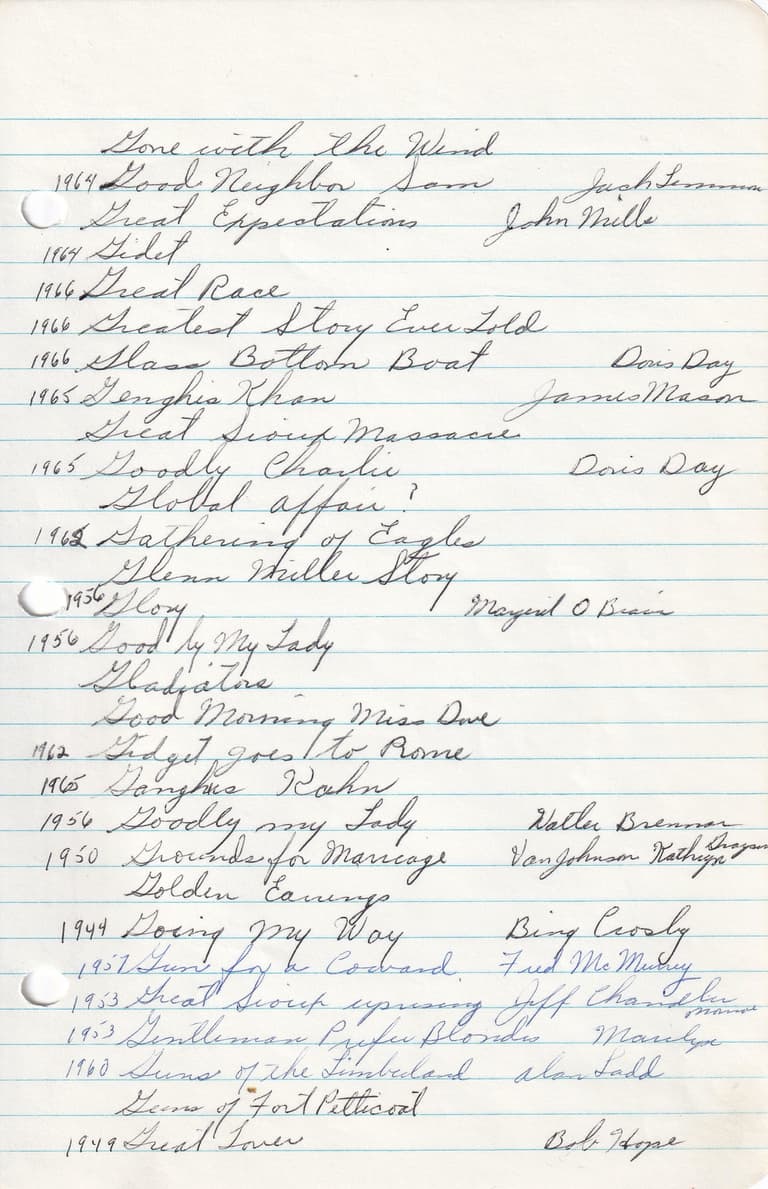 Gone with the Wind
1964 Good Neighbor Sam Jack Lemmon
Great Expectations John Mills
1964 Gidet
1966 Great Race
1966 Greatest Story Ever Told
1966 Glass Bottom Boat Doris Day
1965 Genghis Khan James Mason
Great Sioux Massacre
1965 Goodby Charlie Doris Day
Global affair?
1962 Gathering of Eagles
Glenn Miller Story
1956 Glory Margeret O Brian
1956 Good by My Lady
Gladiators
Good Morning Miss Dove
1962 Gidget goes to Rome
1965 Ganghis Kahn
1956 Goodby my Lady Walter Brennan
1950 Grounds for Marriage Van Johnson Kathryn Grayson
Golden Earrings
1944 Going My Way Bing Crosby
1957 Gun for a Coward Fred McMurray
1953 Great Sioux uprising Jeff Chandler
1953 Gentleman Prefer Blondes Marilyn Monroe
1960 Guns of the Timberland Alan Ladd
Guns of Fort Petticoat
1949 Great Lover Bob Hope